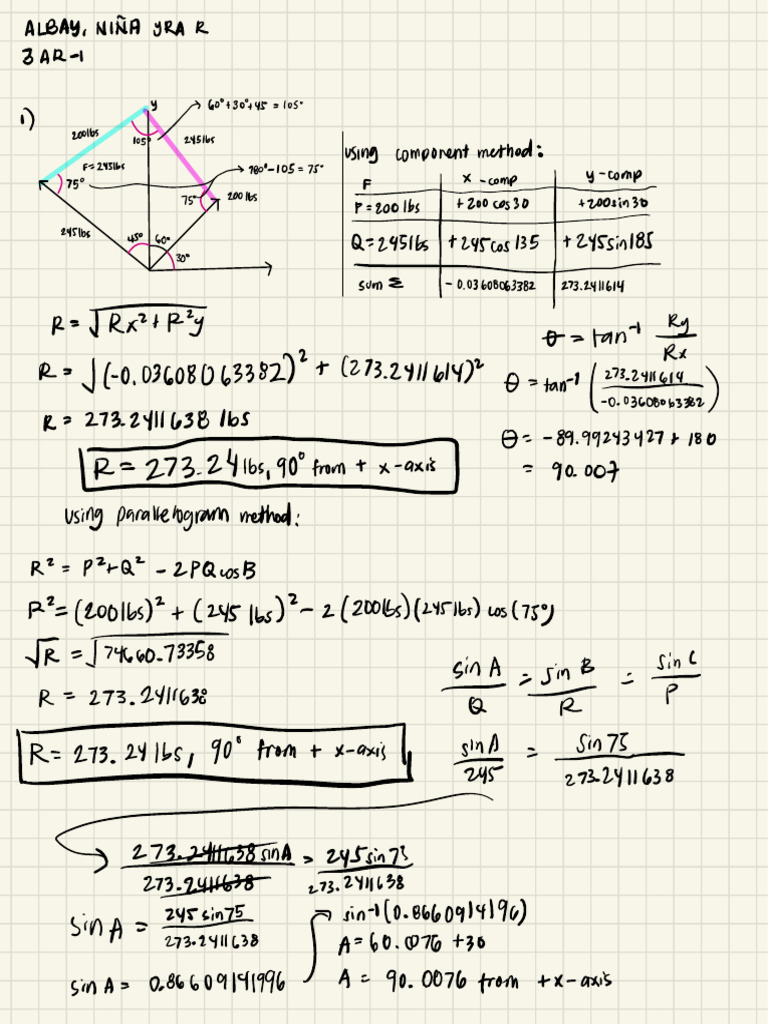 ALBAY, NIÑA YRA R
3 AR-1
1)
y
60°+30°+45 = 105°
200lbs
105°
245lbs
F=245lbs
180°-105 = 75°
75°
75°
200 lbs
245lbs
45°
60°
30°
using component method:
F x -comp y-comp
P=200 lbs +200 cos 30 +200sin 30
Q=245lbs +245cos 135 +245sin 185
sum Σ -0.03608063382 273.2411614
R = √Rx²+R²y
R = √(-0.03608063382)² + (273.2411614)²
R = 273.2411638 lbs
R = 273.24 lbs, 90° from + x-axis
θ = tan⁻¹ Ry/Rx
θ = tan⁻¹ (273.2411614/-0.03608063382)
θ = -89.99243427+180
= 90.007
using parallelogram method:
R² = P²+Q² - 2PQ cos B
R²=(200lbs)² + (245 lbs)² - 2(200lbs)(245lbs) cos(75°)
√R = √74660.73358
R = 273.2411638
R = 273.24 lbs, 90° from + x-axis
sin A/Q = sin B/R = sin C/P
sin A/245 = sin 75/273.2411638
273.2411638 sin A/273.2411638 = 245 sin 75/273.2411638
sin A = 245 sin75/273.2411638
sin A = 0.86609141996
sin⁻¹(0.8660914196)
A = 60.0076 +30
A = 90.0076 from +x-axis